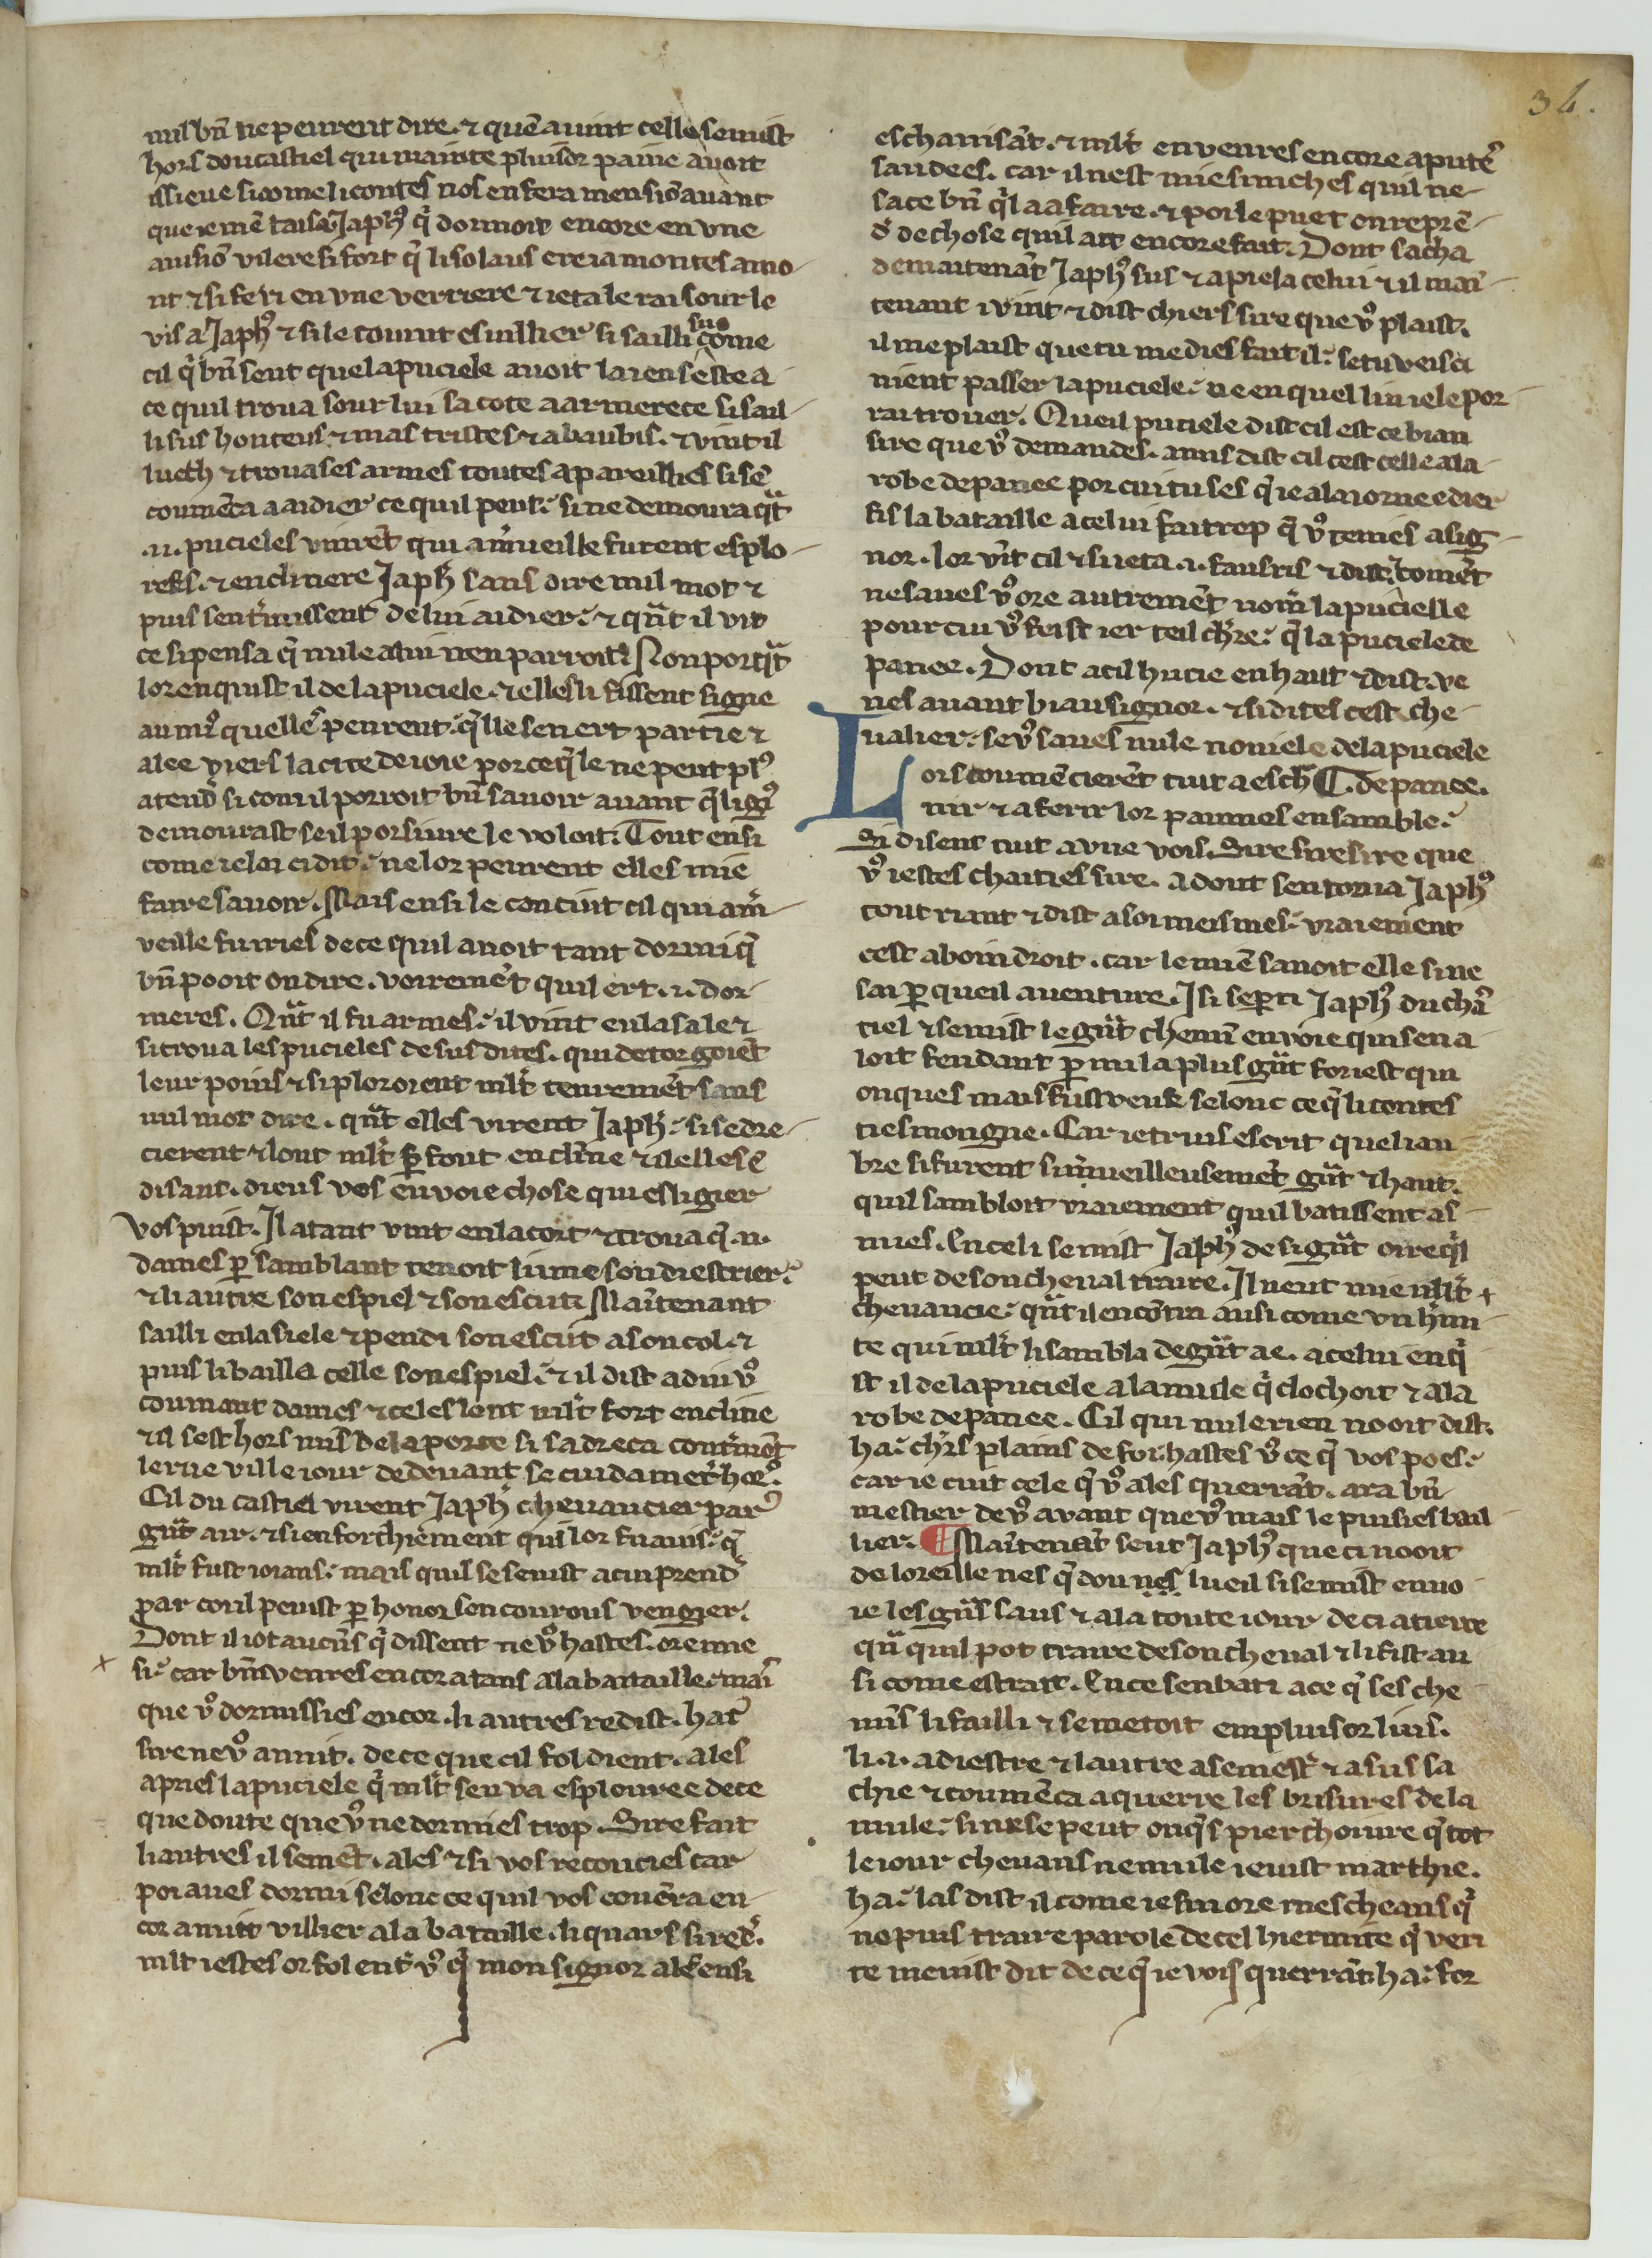 34.
nul bn̄ ne peurent dire. ⁊ quē auint celle se mist
hors dou castiel qui mainte pluisor paine auoit
issieue si com li contes nos en fera mensiō auant
que ie mē taise Iaph⁹ q̄ dormoit encore en vne
auisiō vilere si fort q̄ li solaus creia montes amo-
nt ⁊ si feri en vne verriere ⁊ ieta le rai sour le
vis a Iaph⁹ ⁊ si le couint esuillier si sailli sus come
cil q̄ bn̄ sent que la puciele auoit laiens este a
ce quil troua sour lui sa cote a armerece si sail-
li sus honteus ⁊ mas tristes ⁊ abaubis. ⁊ vint il
luech ⁊ troua ses armes toutes apareillies si sē
coumēca a aidier ce quil peut. si ne demoura q̄t
.ii. pucieles vinrēt qui am̄ueille furent esplo-
rees. ⁊ enclinere Iaph⁹ sans dire nul mot ⁊
puis sentmissent de lui aidier. ⁊ qūt il vit
ce si pensa q̄ nule a lui nen parroit. Non porqūt
lor enquist il de la puciele. ⁊ elles li fissent signe
au mi⁹ quelles peurent. q̄lle sen ert partie ⁊
alee viers la cite de ioie por ce q̄le ne peut pl⁹
atend̄ si com il porroit bn̄ sauoir auant q̄ ligi⁹
demourast se il porsiure le voloit. Tout ensi
come ie loi ci dit. ne lor peurent elles mie
faire sauoir. Mais ensi le conciut cil qui am̄-
veille fu iries de ce quil auoit tant dormi q̄
bn̄ pooit on dire. voiremēt quil ert .i. dor-
meres. Qūt il fu armes. il vint en la sale ⁊
si troua les pucieles desus dites. qui detorgoiēt
leur poins ⁊ si ploroient mlt̄ tenremēt sans
nul mot dire. qūt elles virent Iaph⁹. si se dre-
cierent ⁊ lont mlt̄ p̄font encline ⁊ il elles e
disant. dieus vos envoie chose qui esligier
vos puist. Il atant vint en la cort ⁊ troua q̄ .ii.
dames p̄ samblant tenoit li une son diestrier.
⁊ li autre son espiel ⁊ son escut. Maītenant
sailli en la siele ⁊ pendi son escut a son col. ⁊
puis li bailla celle son espiel. ⁊ il dist a diu v⁹
coumant dames ⁊ celes lont mlt̄ fort encline
⁊ il sest hors mis de la porte si sadreca contrmōt
le rue v il le iour de deuant se cuida metr̄ hoē.
Cil du castiel virent Iaph⁹ cheuaucier par
gūt air. ⁊ si enforchiement qui lor fu auis. q̄
mlt̄ fust ioians. mais quil se seuist a cui prend̄
par coi il peuist p̄ honor son courous vengier.
Dont il i ot aucūs q̄ dissent ne v⁹ hastes. ore mie
si. car bn̄ i venres encor a tans a la bataille. mai
que v⁹ dormissies encor. li autres redist. hat̄
sire ne v⁹ anuit. de ce que cil fol dient. ales
apries la puciele q̄ mlt̄ sen va esplouree de ce
que doute que v⁹ ne dormies trop. Sire fait
li autres il se mēt. ales ⁊ si vos recouties car
poi aues dormi selonc ce quil vos couēra en
cor anuit villier a la bataille. li quars si red̄.
mlt̄ iestes or fol ent̄ v⁹ q̄ mon signor ales ensi
eschauisāt. ⁊ mlt̄ en venres encore a put ē
saudees. car il nest mie si niches quil ne
sace bn̄ q̄l a a faire. ⁊ poi le puet on reprē-
d̄ de chose quil ait encore fait. Dont sacha
de maitenāt Iaph⁹ sus ⁊ apiela celui ⁊ il mai-
tenant i vint ⁊ dist chiers sire que v⁹ plaist.
il me plaist que tu me dies fait il. se tu veis ci
nient passer la puciele. ne en quel liu ie le por
rai trouer. Queil puciele dist cil est ce biau
sire que v⁹ demandes. amis dist cil cest celle a la
robe de panee por cui tu ses q̄ ie a la iornee dier
fis la bataille a celui faitrep q̄ v⁹ tenies a sig-
nor. lor vīt cil ⁊ si ieta .i. faus ris ⁊ dist. comēt
ne saues v⁹ ore autremēt nom̄ la pucielle
pour cui v⁹ feist ier teil ch̄re. q̄ la puciele de
panee. Dont a cil hucie en haut ⁊ dist. ve
nes auant biau signor. ⁊ si dites cest che-
ualier. se v⁹ saues nule nouiele de la puciele
Lors coumēcierēt tuit a esch ¶ de panee.
nir ⁊ a ferir lor paumes ensamble.
Si disent tuit a vne vois. Sire sire sire que
v⁹ iestes chaities sire. a dont sen torna Iaph⁹
tout riant ⁊ dist a soi meismes. vraiement
cest a boin droit. car le miē sauoit elle si ne
sai p̄ queil auenture. Isi se parti Iaph⁹ du chas
tiel ⁊ se mist le gūt chemī en voie qui sen a
loit fendant p̄ mi la plus gūt foriest qui
onques mais fust veue selonc ce q̄ li contes
tiesmongne. Car ie truis escrit que li au
bre si furent sim̄ueilleusemēt gūt ⁊ haut.
quil sambloit vraiement quil batissent as
nues. En celi se mist Iaph⁹ de si gūt oire q̄l
peut de son cheual traire. Il neut mie mlt̄
cheuaucie. qūt il encōtra ausi come vn hmi-
te qui mlt̄ li sambla de gūt ae. a celui enq̄
st il de la puciele a la mule q̄ clochoit ⁊ a la
robe de panee. Cil qui nule rien nooit dist.
ha. ch̄rs plains de foi. hastes v⁹ ce q̄ vos poes.
car ie cuit cele q̄ v⁹ ales querrāt. ara bn̄
mestier de v⁹ avant que v⁹ mais le puisies bail
lier. ¶ Maītenāt sent Iaph⁹ que ci nooit
de loreille nes q̄ dou nes lueil si se mist en uo
ie les gn̄s saus ⁊ ala toute iour de ci a tierre
qūquil pot traire de son cheual ⁊ li fist au
si come estrait. En ce senbati a ce q̄ ses che
mīs li failli ⁊ se metoit em pluisor liuis.
li .i. a diestre ⁊ lautre a seniest̄ ⁊ a sus sa
chie ⁊ coumēca a querre les brisures de la
mule. si ne se peut onq̄s pierchoiure q̄ tot
le iour cheuaus ne mule i euist marchie.
ha. las dist il come ie sui ore mescheans q̄
ne puis traire parole de cel hiermite q̄ veri
te meuist dit de ce q̄ ie vois querrāt. ha. for